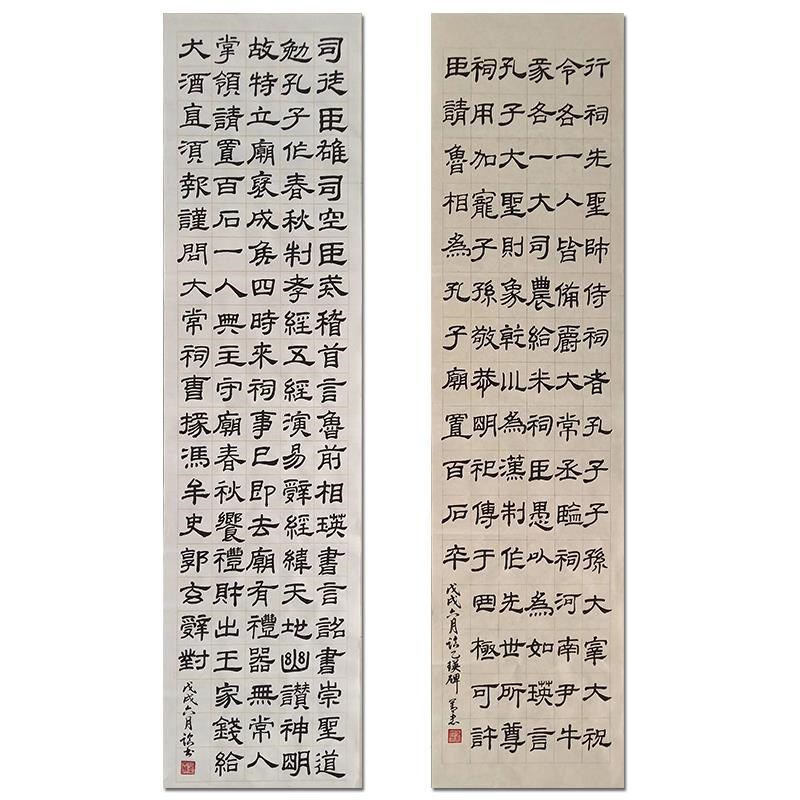 司徒臣雄司空臣戒稽首言魯前相瑛書言詔書崇聖道
勉孔子作春秋制孝經五經演易辭經緯天地幽讚神明
故特立廟褒成侯四時來祠事已即去廟有禮器無常人
掌領請置百石一人典主守廟春秋饗禮財出王家錢給
犬酒直須報謹問大常祠曹掾馮牟史郭玄辭對
戊戌六月
行祠先聖師侍祠者孔子子孫大宰大祝
令各一人皆備爵大常丞監祠河南尹牛
豕各一大司農給米祠臣愚以為如瑛言
孔子大聖則象乾川為漢制作先世所尊
祠用加寵子孫敬恭明祀傳于罔極可許
臣請魯相為孔子廟置百石卒
戊戌六月臨乙瑛碑